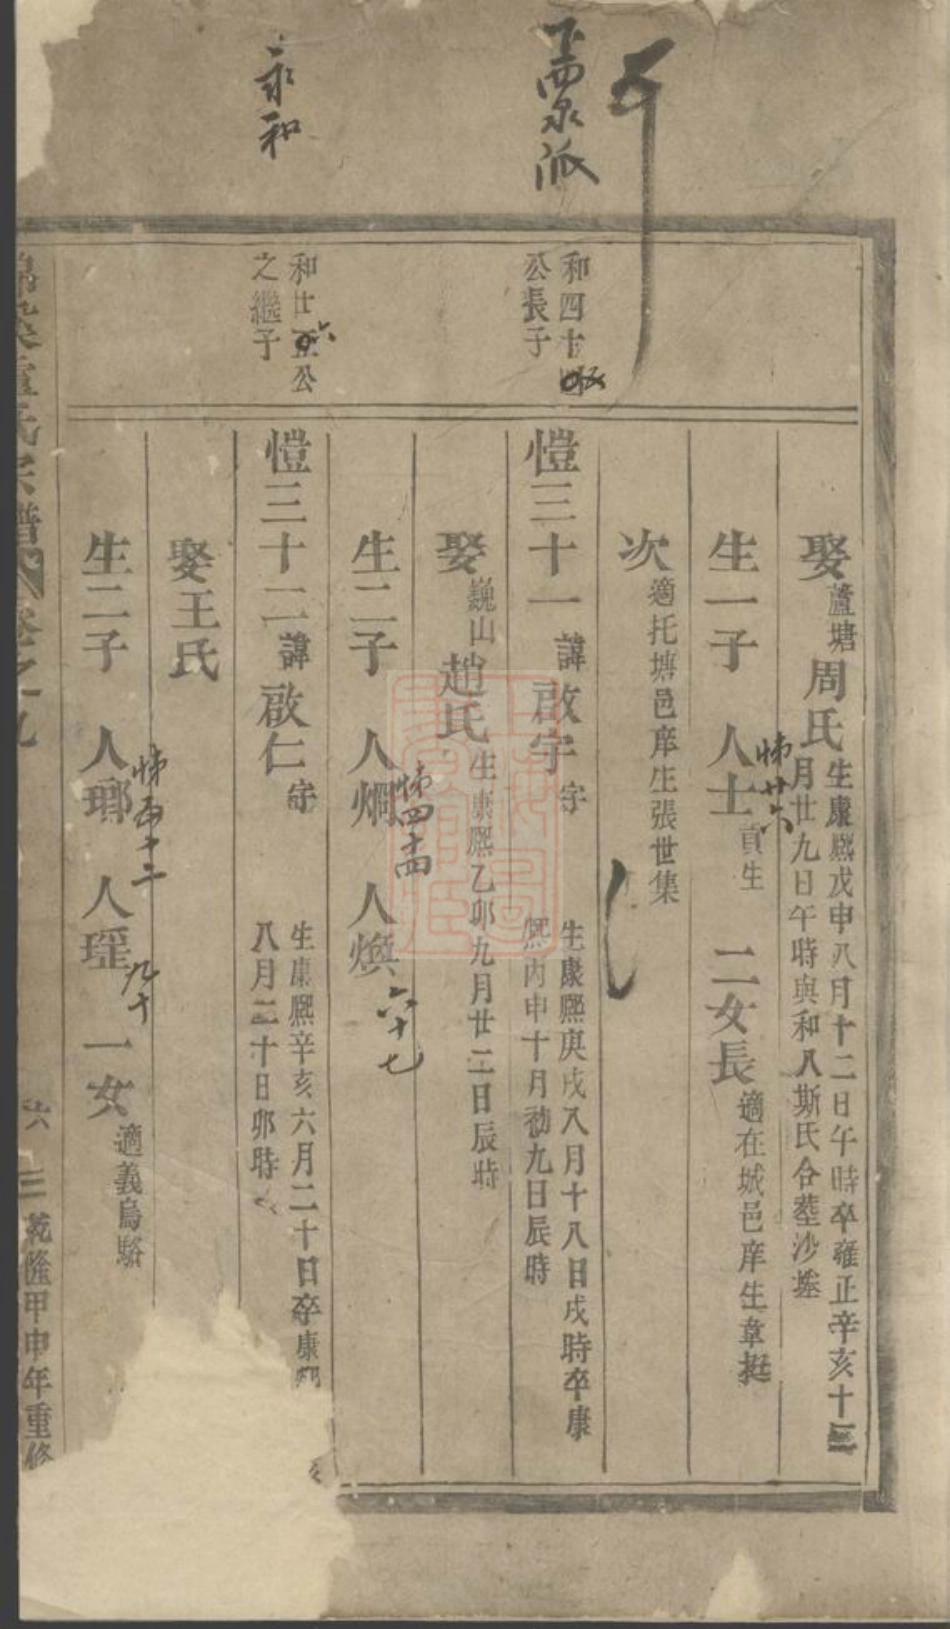 派
永和
和四十
公長子
和廿六公
之繼子
娶蘆塘周氏生康熙戊申八月十二日午時卒雍正辛亥十
月廿九日午時與和八斯氏合塟沙塗
生一子 人士貢生 二女長適在城邑庠生章挺
悌廿六
次適托塘邑庠生張世集
愷三十一諱啟宇字 生康熙庚戌八月十八日戌時卒康
熙丙申十月初九日辰時
娶巍山趙氏生康熙乙卯九月廿二日辰時
生二子 人烱 人煥
悌四十四
六十七
愷三十二諱啟仁字 生康熙辛亥六月二十日卒康熙
八月二十日卯時
娶王氏
生二子 人瑯 人瑶 一女適義烏駱
悌五十二
九十
盧氏宗譜 卷之十九 六 三 乾隆甲申年重修